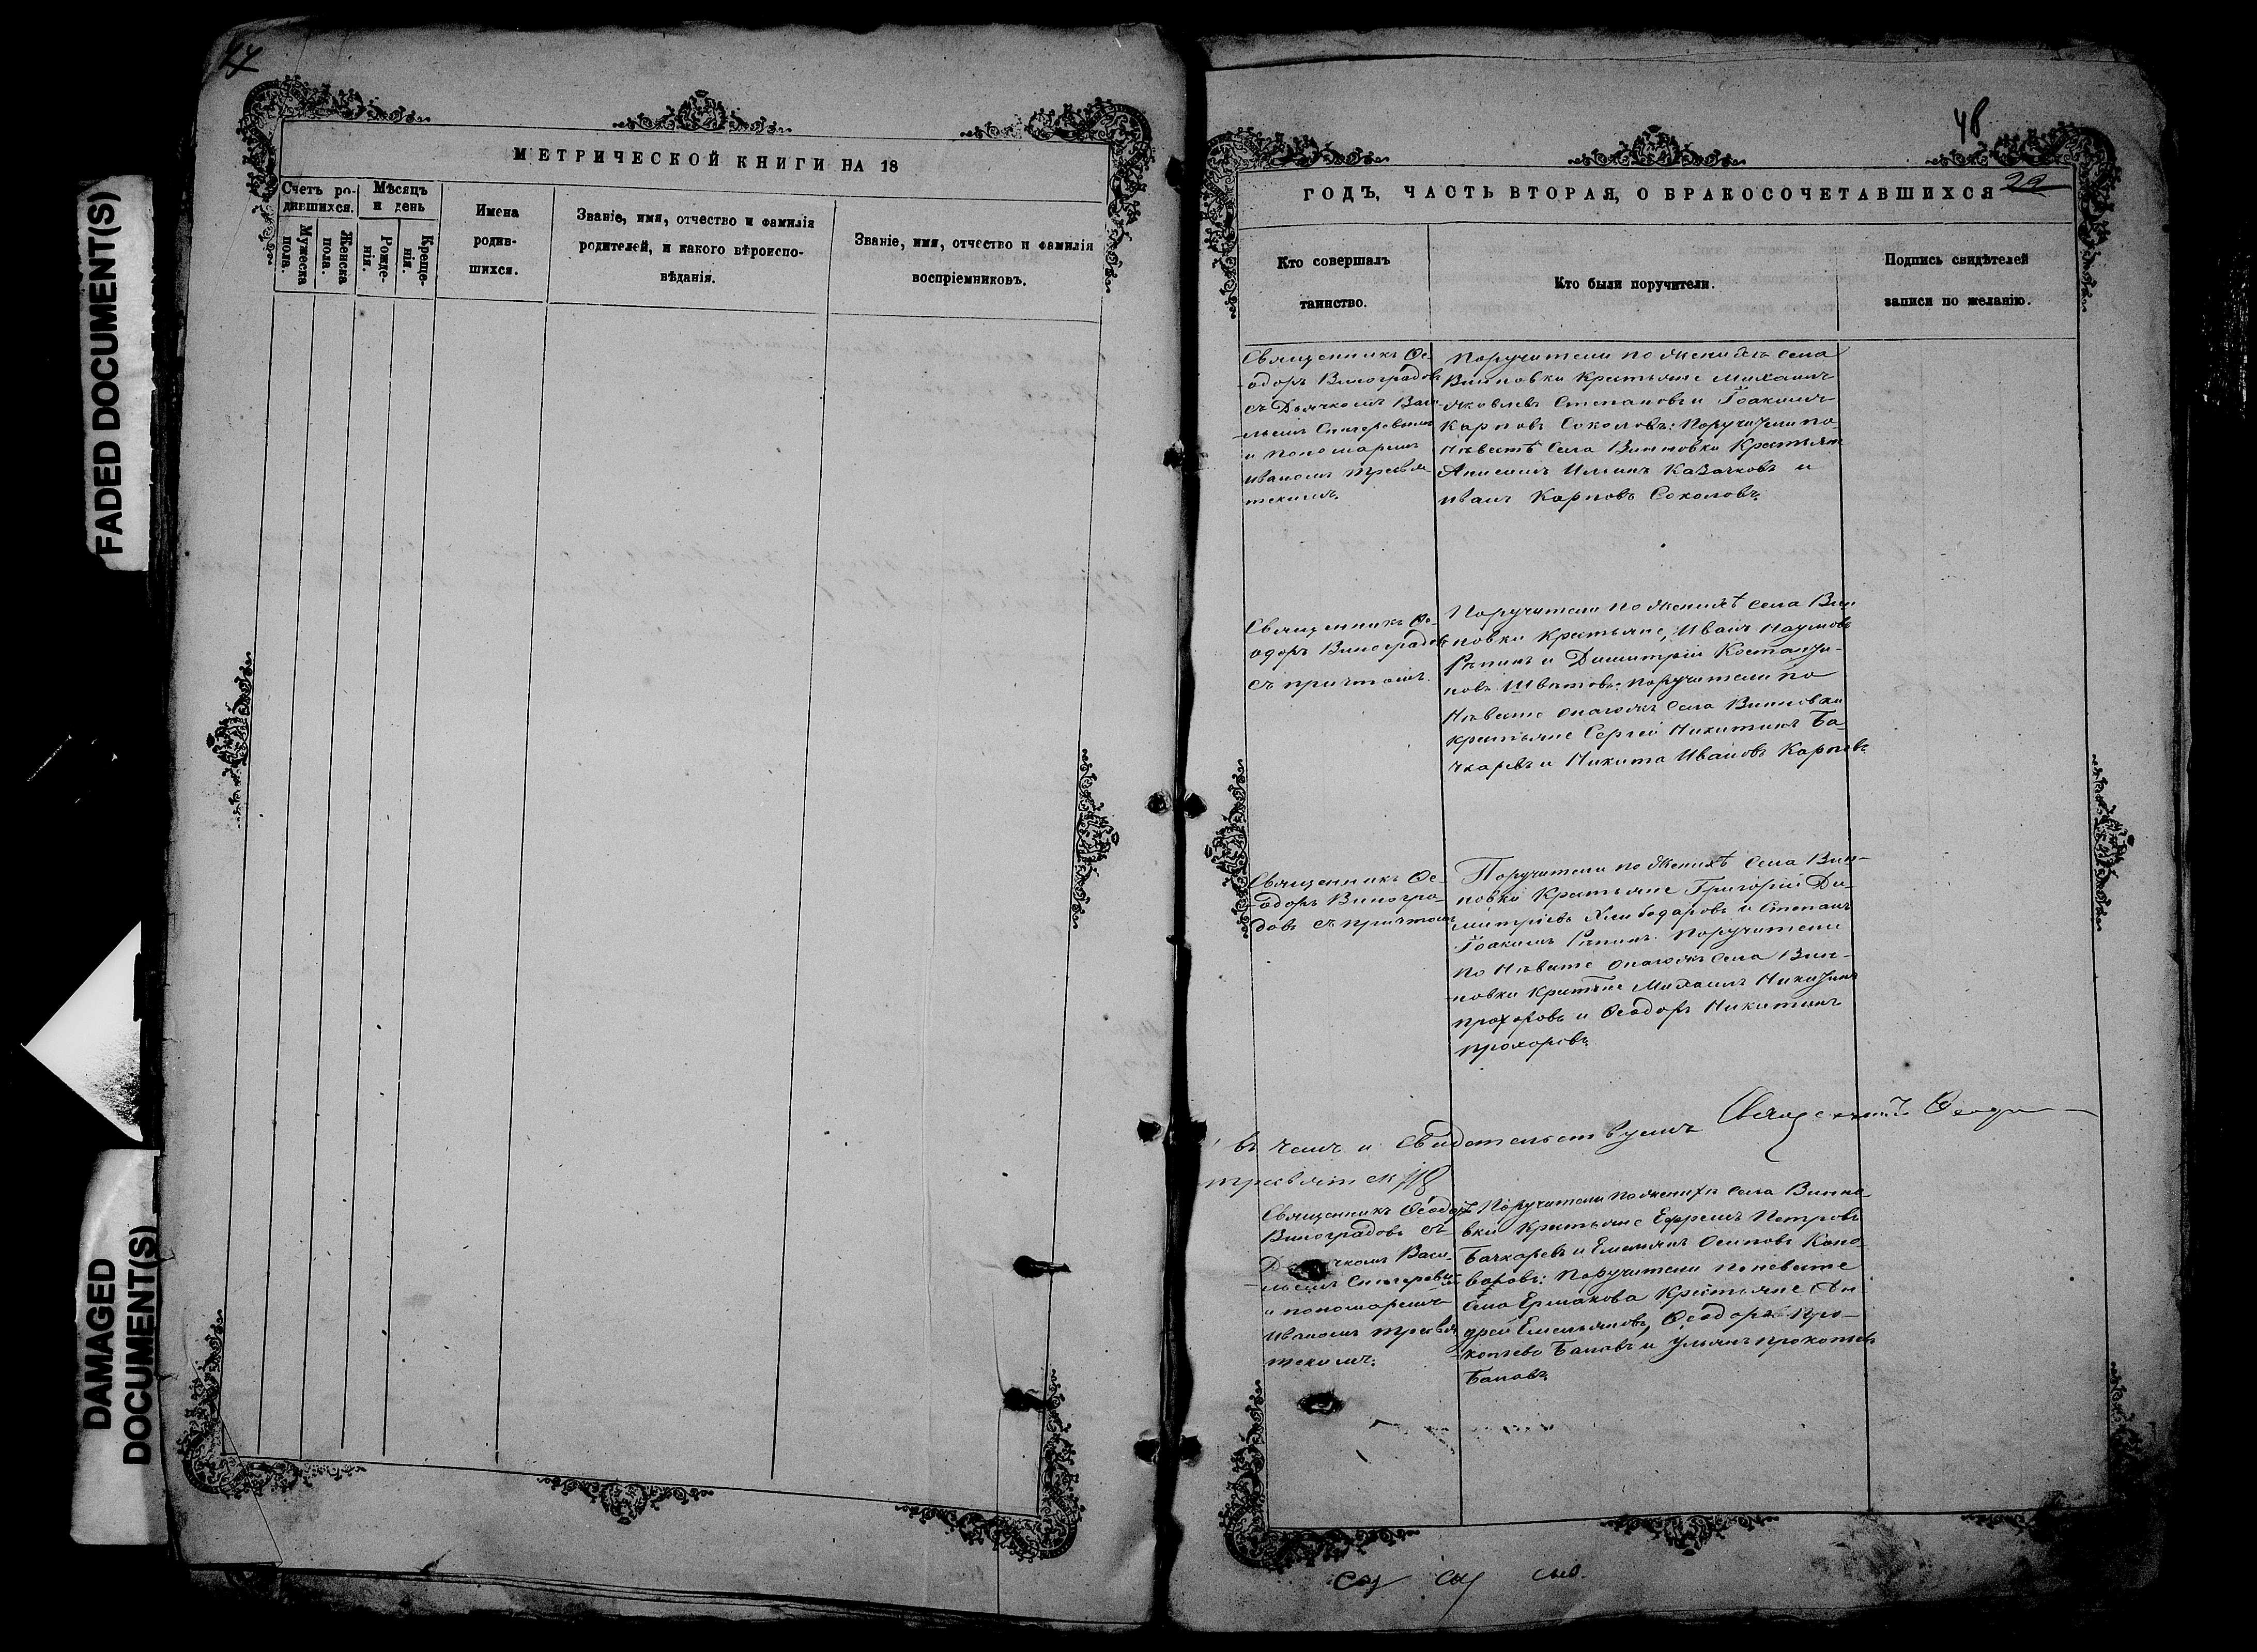 FADED DOCUMENT(S)
DAMAGED
DOCUMENT(S)
МЕТРИЧЕСКОЙ КНИГИ НА 18
Счетъ ро-
дившихся.
Мужеска
пола.
Женска
пола.
Мѣсяцъ
и день
Рожде-
нія.
Креще-
нія.
Имена
родив-
шихся.
Званіе, имя, отчество и фамилія
родителей, и какого вѣроиспо-
вѣданія.
Званіе, имя, отчество и фамилія
воспріемниковъ.
48
ГОДЪ, ЧАСТЬ ВТОРАЯ, О БРАКОСОЧЕТАВШИХСЯ
Кто совершалъ
таинство.
Кто были поручители.
Подпись свидѣтелей
записи по желанію.
Священникъ Ѳе-
одоръ Виноградовъ
съ Дьячкомъ Васи-
льемъ
и пономаремъ
Иваномъ
Поручители по женихѣ села
Винновки Крестьяне Михаилъ
Яковлевъ Степановъ и Іоакимъ
Карповъ Соколовъ: Поручители по
Невѣстѣ Села Винновки Крестьяне
Анисимъ Ильинъ Казачковъ и
Иванъ Карповъ Соколовъ.
Священникъ Ѳе-
одоръ Виноградовъ
съ причтомъ.
Поручители по Женихѣ села Вин
новки Крестьяне, Иванъ Наумовъ
Рѣпинъ и Димитрій
новъ Швѣтовъ: поручители по
Невѣсте онагожъ Села Винновки
крестьяне Сергей Никитинъ Ба-
чкаревъ и Никита Ивановъ Карповъ
Священникъ Ѳе-
одоръ Виногра-
довъ съ причтомъ
Поручители по Женихѣ Села Вин-
новки Крестьяне Григорій Ди-
митріевъ Хлибодаровъ и Степанъ
Іоакимъ Рѣпинъ. Поручители
по Невѣсте онагожъ Села Вин-
новки Михаилъ Никитинъ
прохоровъ и Ѳеодоръ Никитинъ
прохоровъ.
въ чемъ и Свидетельствуемъ Священникъ
Священникъ Ѳеодоръ
Виноградовъ съ
Васи-
льемъ
и пономаремъ
Иваномъ
Поручители по женихѣ села Винно-
вки Крестьяне Ефремъ Петровъ
Бачкаревъ и Емельянъ Осиповъ Коно-
варовъ: Поручители по невѣсте
Села Ермакова Крестьяне Ан
дрей Емельяновъ, Ѳеодоръ Про-
копьевъ Бановъ и Ульянъ прокопьевъ
Бановъ.